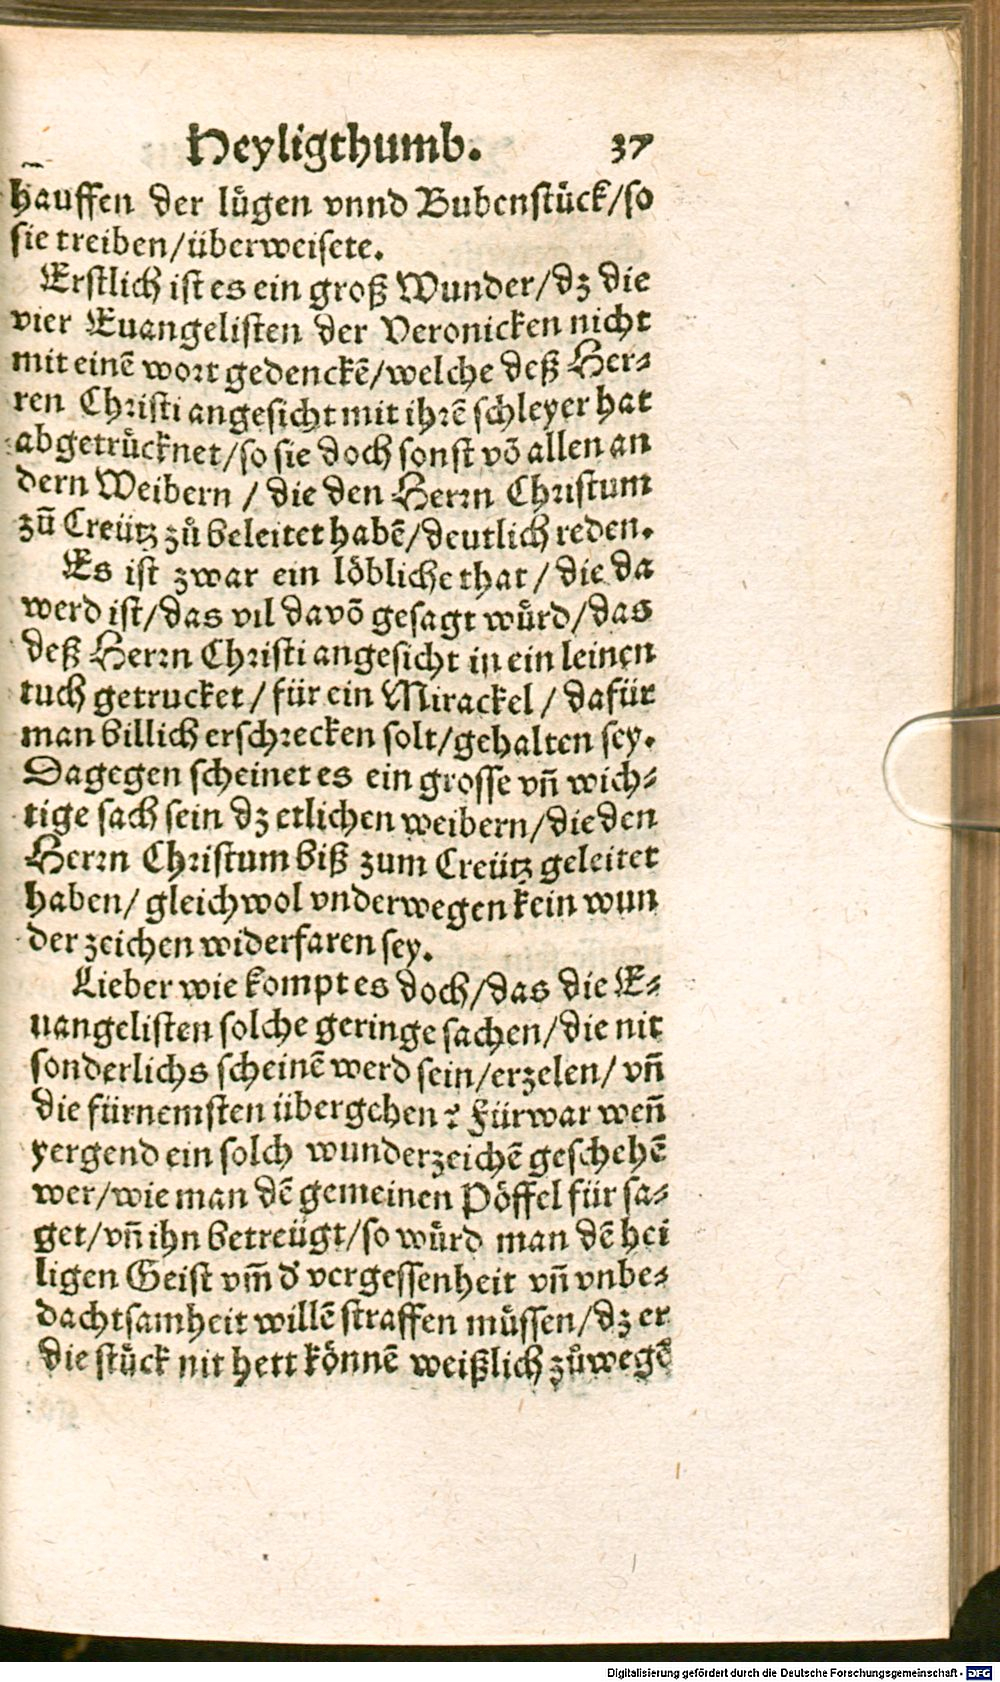 Heyligthumb. 37
hauffen der lůgen vnnd Bubenstůck/so
sie treiben/überweisete.
Erstlich ist es ein groß Wunder/dz die
vier Euangelisten der Veronicken nicht
mit einẽ wort gedenckẽ/welche deß Her⸗
ren Christi angesicht mit ihrẽ schleyer hat
abgetrůcknet/so sie doch sonst võ allen an
dern Weibern / die den Herrn Christum
zũ Creütz zů beleitet habẽ/deutlich reden.
Es ist zwar ein löbliche that / die da
werd ist/das vil davõ gesagt wůrd/das
deß Herrn Christi angesicht in ein leinen
tuch getrucket / für ein Mirackel / dafür
man billich erschrecken solt/gehalten sey.
Dagegen scheinet es ein grosse vñ wich⸗
tige sach sein dz etlichen weibern/die den
Herrn Christum biß zum Creütz geleitet
haben/ gleichwol vnderwegen kein wun
der zeichen widerfaren sey.
Lieber wie kompt es doch/das die E⸗
uangelisten solche geringe sachen/die nit
sonderlichs scheinẽ werd sein/erzelen/ vñ
die fürnemsten übergehen? Fürwar weñ
yergend ein solch wunderzeichẽ geschehẽ
wer/wie man dẽ gemeinen Pöffel für sa⸗
get/vñ ihn betreügt/so wůrd man dẽ hei
ligen Geist vm̃ d' vergessenheit vñ vnbe⸗
dachtsamheit willẽ straffen můssen/dz er
die stůck nit hett könnẽ weißlich zůwegẽ
Digitalisierung gefördert durch die Deutsche Forschungsgemeinschaft - DFG